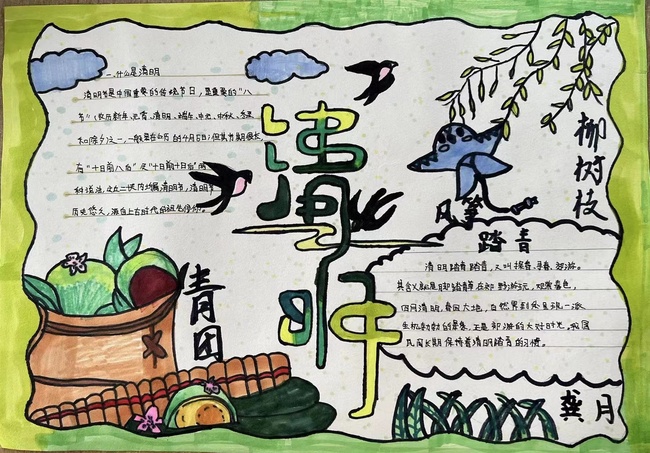 一、什么是清明
清明节是中国重要的传统节日，是重要的“八
节”（农历新年、元宵、清明、端午、中元、中秋、冬至
和除夕）之一，一般是在公历的4月5日；但其节期很长，
有“十日前八后”及“十日前十日后”两
种说法，这近二十天内均属清明节，清明节
历史悠久，源自上古时代的
清明
柳树枝
风筝
踏青
清明踏青踏青，又叫探春、寻春、郊游。
其含义就是脚踏青草在郊野游玩，观赏春色，
四月清明，春回大地，自然界到处呈现一派
生机勃勃的景象，正是郊游的大好时光，我国
民间长期保持着清明踏青的习惯。
青团
龚月